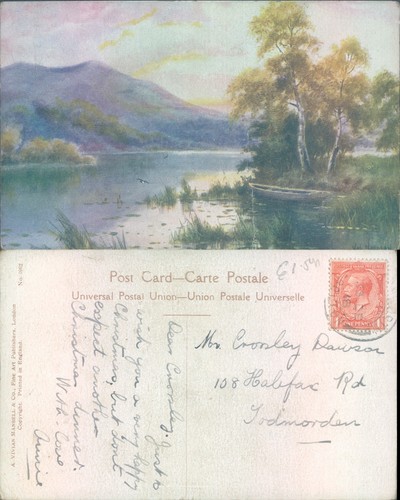 Post Card—Carte Postale
Universal Postal Union—Union Postale Universelle
£1-50
Dear Crossley. Just to
wish you a very happy
Christmas, but don't
expect another
Christmas dinner.
With love
Annie
Mr. Crossley Dawson
108 Halifax Rd
Todmorden
A. Vivian Mansell & Co., Fine Art Publishers, London
Copyright. Printed in England.